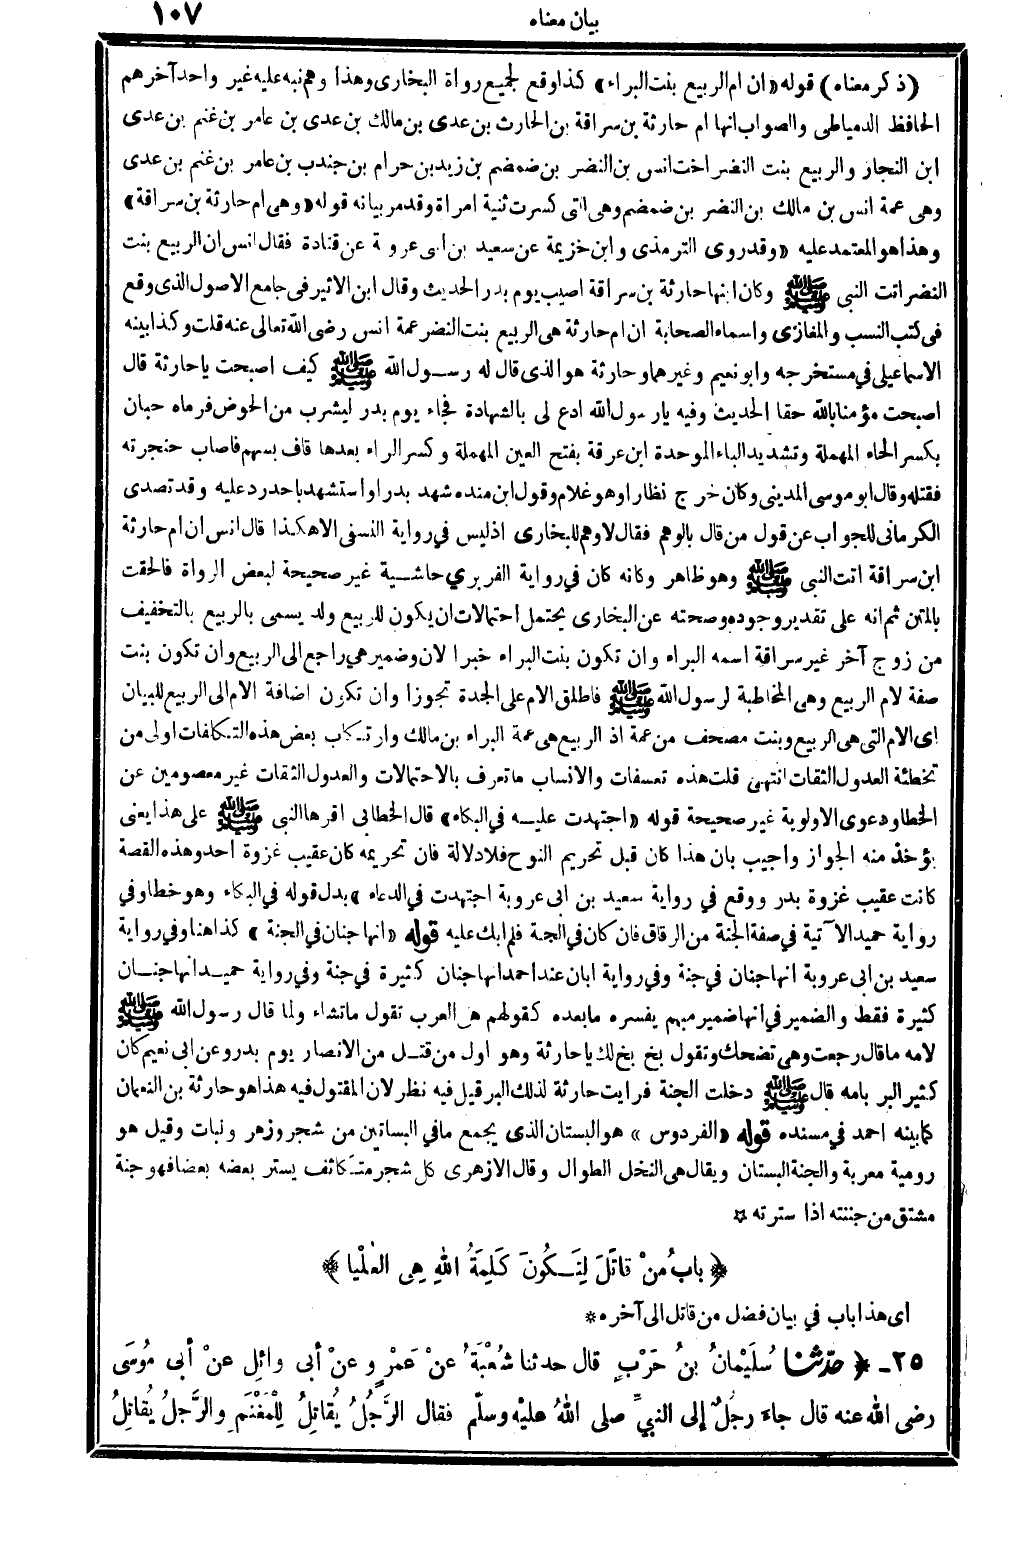 بيان معناه ١٠٧
(ذكر معناه) قوله «ان ام الربيع بنت البراء» كذا وقع لجميع رواة البخارى وهذا وهم نبه عليه غير واحد آخرهم
الحافظ الدمياطى والصواب انها ام حارثة بن سراقة بن الحارث بن عدى بن مالك بن عدى بن عامر بن غنم بن عدى
ابن النجار والربيع بنت النضر اخت انس بن النضر بن ضمضم بن زيد بن حرام بن جندب بن عامر بن غنم بن عدى
وهى عمة انس بن مالك بن النضر بن ضمضم وهى التى كسرت ثنية امراة وقد مر بيانه قوله «وهى ام حارثة بن سراقة»
وهذا هو المعتمد عليه «وقد روى الترمذى وابن خزيمة عن سعيد بن ابى عروبة عن قتادة فقال انس ان الربيع بنت
النضر اتت النبى ﷺ وكان ابنها حارثة بن سراقة اصيب يوم بدر الحديث وقال ابن الاثير فى جامع الاصول الذى وقع
فى كتب النسب والمغازى واسماء الصحابة ان ام حارثة هى الربيع بنت النضر عمة انس رضى الله تعالى عنه قلت وكذا بينه
الاسماعيلى في مستخرجه وابو نعيم وغيرهما وحارثة هو الذى قال له رسول الله ﷺ كيف اصبحت يا حارثة قال
اصبحت مؤمنا بالله حقا الحديث وفيه يا رسول الله ادع لى بالشهادة فجاء يوم بدر ليشرب من الحوض فرماه حبان
بكسر الحاء المهملة وتشديد الباء الموحدة ابن عرقة بفتح العين المهملة وكسر الراء بعدها قاف بسهم فاصاب حنجرته
فقتله وقال ابو موسى المدينى وكان خرج نظارا وهو غلام وقول ابن منده شهد بدرا واستشهد باحد رد عليه وقد تصدى
الكرمانى للجواب عن قول من قال بالوهم فقال لا وهم للبخارى اذ ليس في رواية النسفى الا هكذا قال انس ان ام حارثة
ابن سراقة اتت النبى ﷺ وهو ظاهر وكانه كان في رواية الفربري حاشية غير صحيحة لبعض الرواة فالحقت
بالمتن ثم انه على تقدير وجوده وصحته عن البخارى يحتمل احتمالات ان يكون للربيع ولد يسمى بالربيع بالتخفيف
من زوج آخر غير سراقة اسمه البراء وان تكون بنت البراء خبرا لان وضمير هي راجع الى الربيع وان تكون بنت
صفة لام الربيع وهى المخاطبة لرسول الله ﷺ فاطلق الام على الجدة تجوزا وان تكون اضافة الام الى الربيع للبيان
اى الام التى هى الربيع وبنت مصحف من عمة اذ الربيع هى عمة البراء بن مالك وارتكاب بعض هذه التكلفات اولى من
تخطئة العدول الثقات انتهى قلت هذه تعسفات والانساب ما تعرف بالاحتمالات والعدول الثقات غير معصومين عن
الخطا ودعوى الاولوية غير صحيحة قوله «اجتهدت عليه في البكاء» قال الخطابى اقرها النبى ﷺ على هذا يعنى
يؤخذ منه الجواز واجيب بان هذا كان قبل تحريم النوح فلا دلالة فان تحريمه كان عقيب غزوة احد وهذه القصة
كانت عقيب غزوة بدر ووقع في رواية سعيد بن ابى عروبة اجتهدت في الدعاء» بدل قوله في البكاء وهو خطا وفي
رواية حميد الآتية في صفة الجنة من الرقاق فان كان في الجنة فلم ابك عليه قوله «انها جنان في الجنة» كذا هنا وفي رواية
سعيد بن ابى عروبة انها جنان في جنة وفي رواية ابان عند احمد انها جنان كثيرة في جنة وفي رواية حميد انها جنان
كثيرة فقط والضمير في انها ضمير مبهم يفسره ما بعده كقولهم هى العرب تقول ما تشاء ولما قال رسول الله ﷺ
لامه ما قال رجعت وهى تضحك وتقول بخ بخ لك يا حارثة وهو اول من قتل من الانصار يوم بدر وعن ابى نعيم كان
كثير البر بامه قال ﷺ دخلت الجنة فرايت حارثة لذلك البر قيل فيه نظر لان المقتول فيه هذا هو حارثة بن النعمان
كما بينه احمد في مسنده قوله «الفردوس» هو البستان الذى يجمع ما في البساتين من شجر وزهر ونبات وقيل هو
رومية معربة والجنة البستان ويقال هى النخل الطوال وقال الازهرى كل شجر متكاثف يستر بعضه بعضا فهو جنة
مشتق من جننته اذا سترته ☆
﴿ بابُ مَنْ قاتَلَ لِتَكُونَ كَلِمَةُ اللهِ هِى العُلْيا ﴾
اى هذا باب في بيان فضل من قاتل الى آخره *
٢٥ـ ﴿ حدّثنا سُلَيْمانُ بنُ حَرْبٍ قال حدثنا شُعْبَةُ عنْ عَمْرٍو عنْ أبى وائِلٍ عنْ أبى مُوسَى
رضى الله عنه قال جاءَ رجُلٌ إلى النبىِّ صلى اللهُ عليْه وسلّم فقال الرَّجُلُ يُقاتِلُ لِلْمَغْنَمِ والرَّجلُ يُقاتِلُ